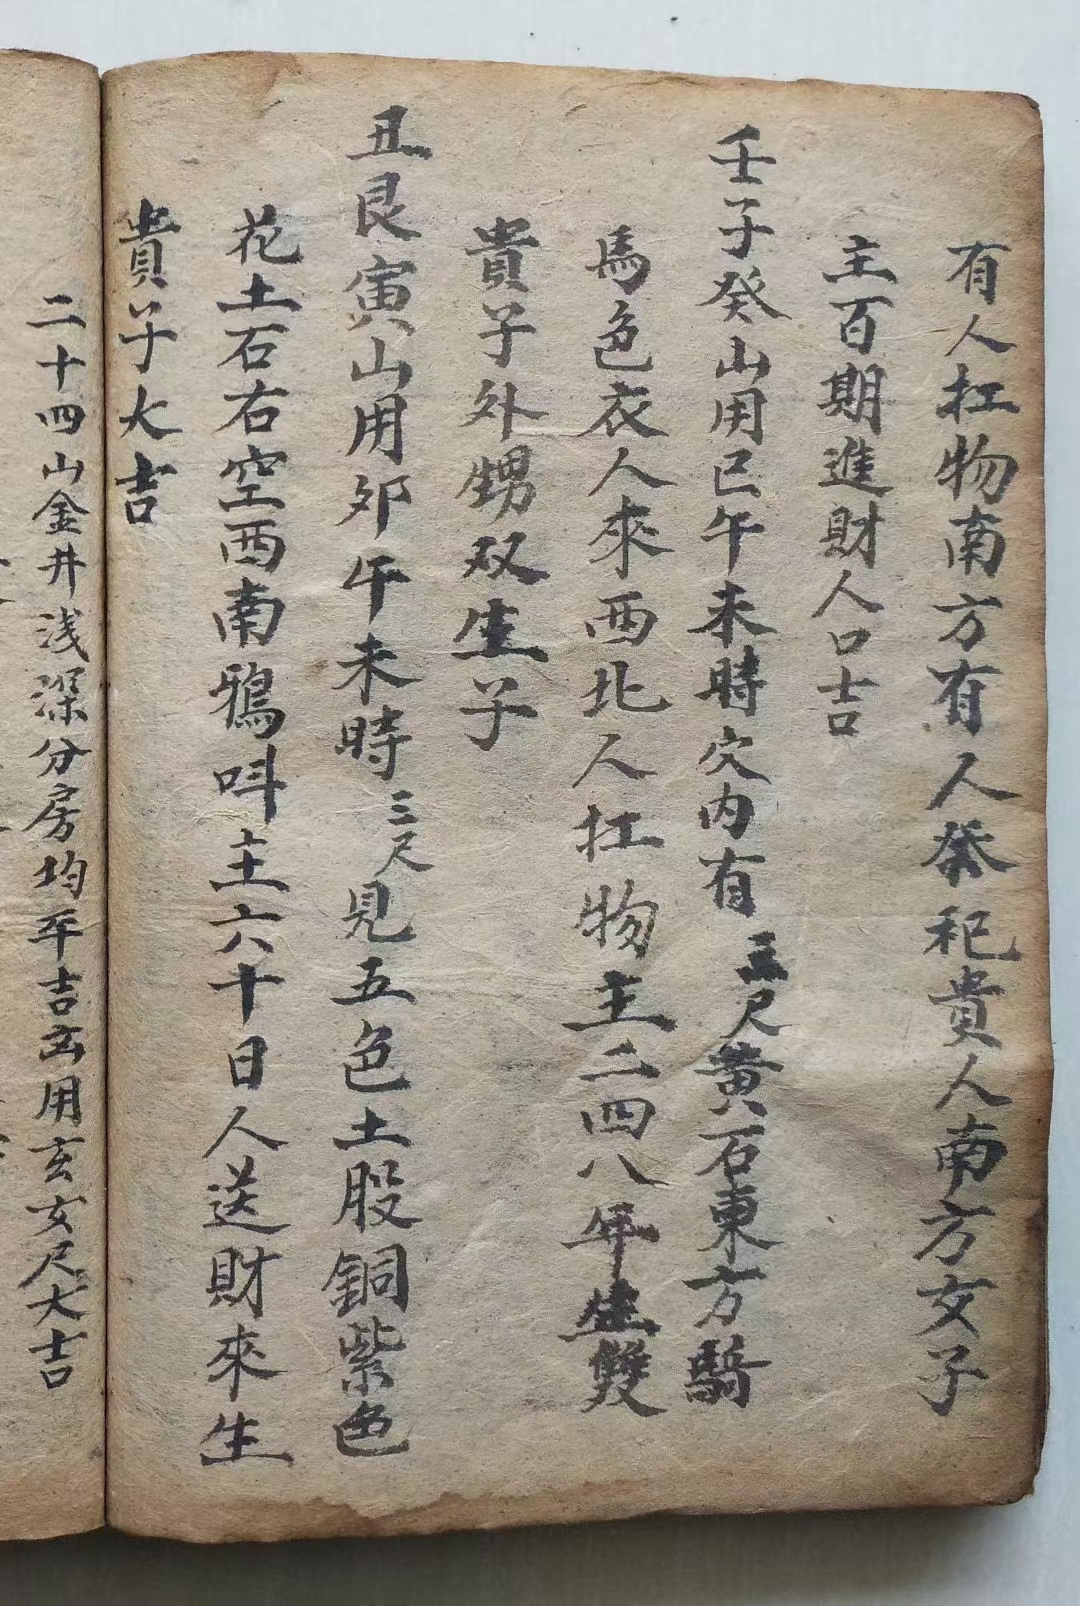 有人扛物南方有人祭祀貴人南方女子
主百期進財人口吉
壬子癸山用巳午未時穴内有三尺黄石東方騎
馬色衣人來西北人扛物主二四八年生雙
貴子外甥双生子
丑艮寅山用卯午未時三尺見五色土股銅紫色
花土石右空西南鴉呌主六十日人送財來生
貴子大吉
二十四山金井浅深分房均平吉凶用玄女尺大吉